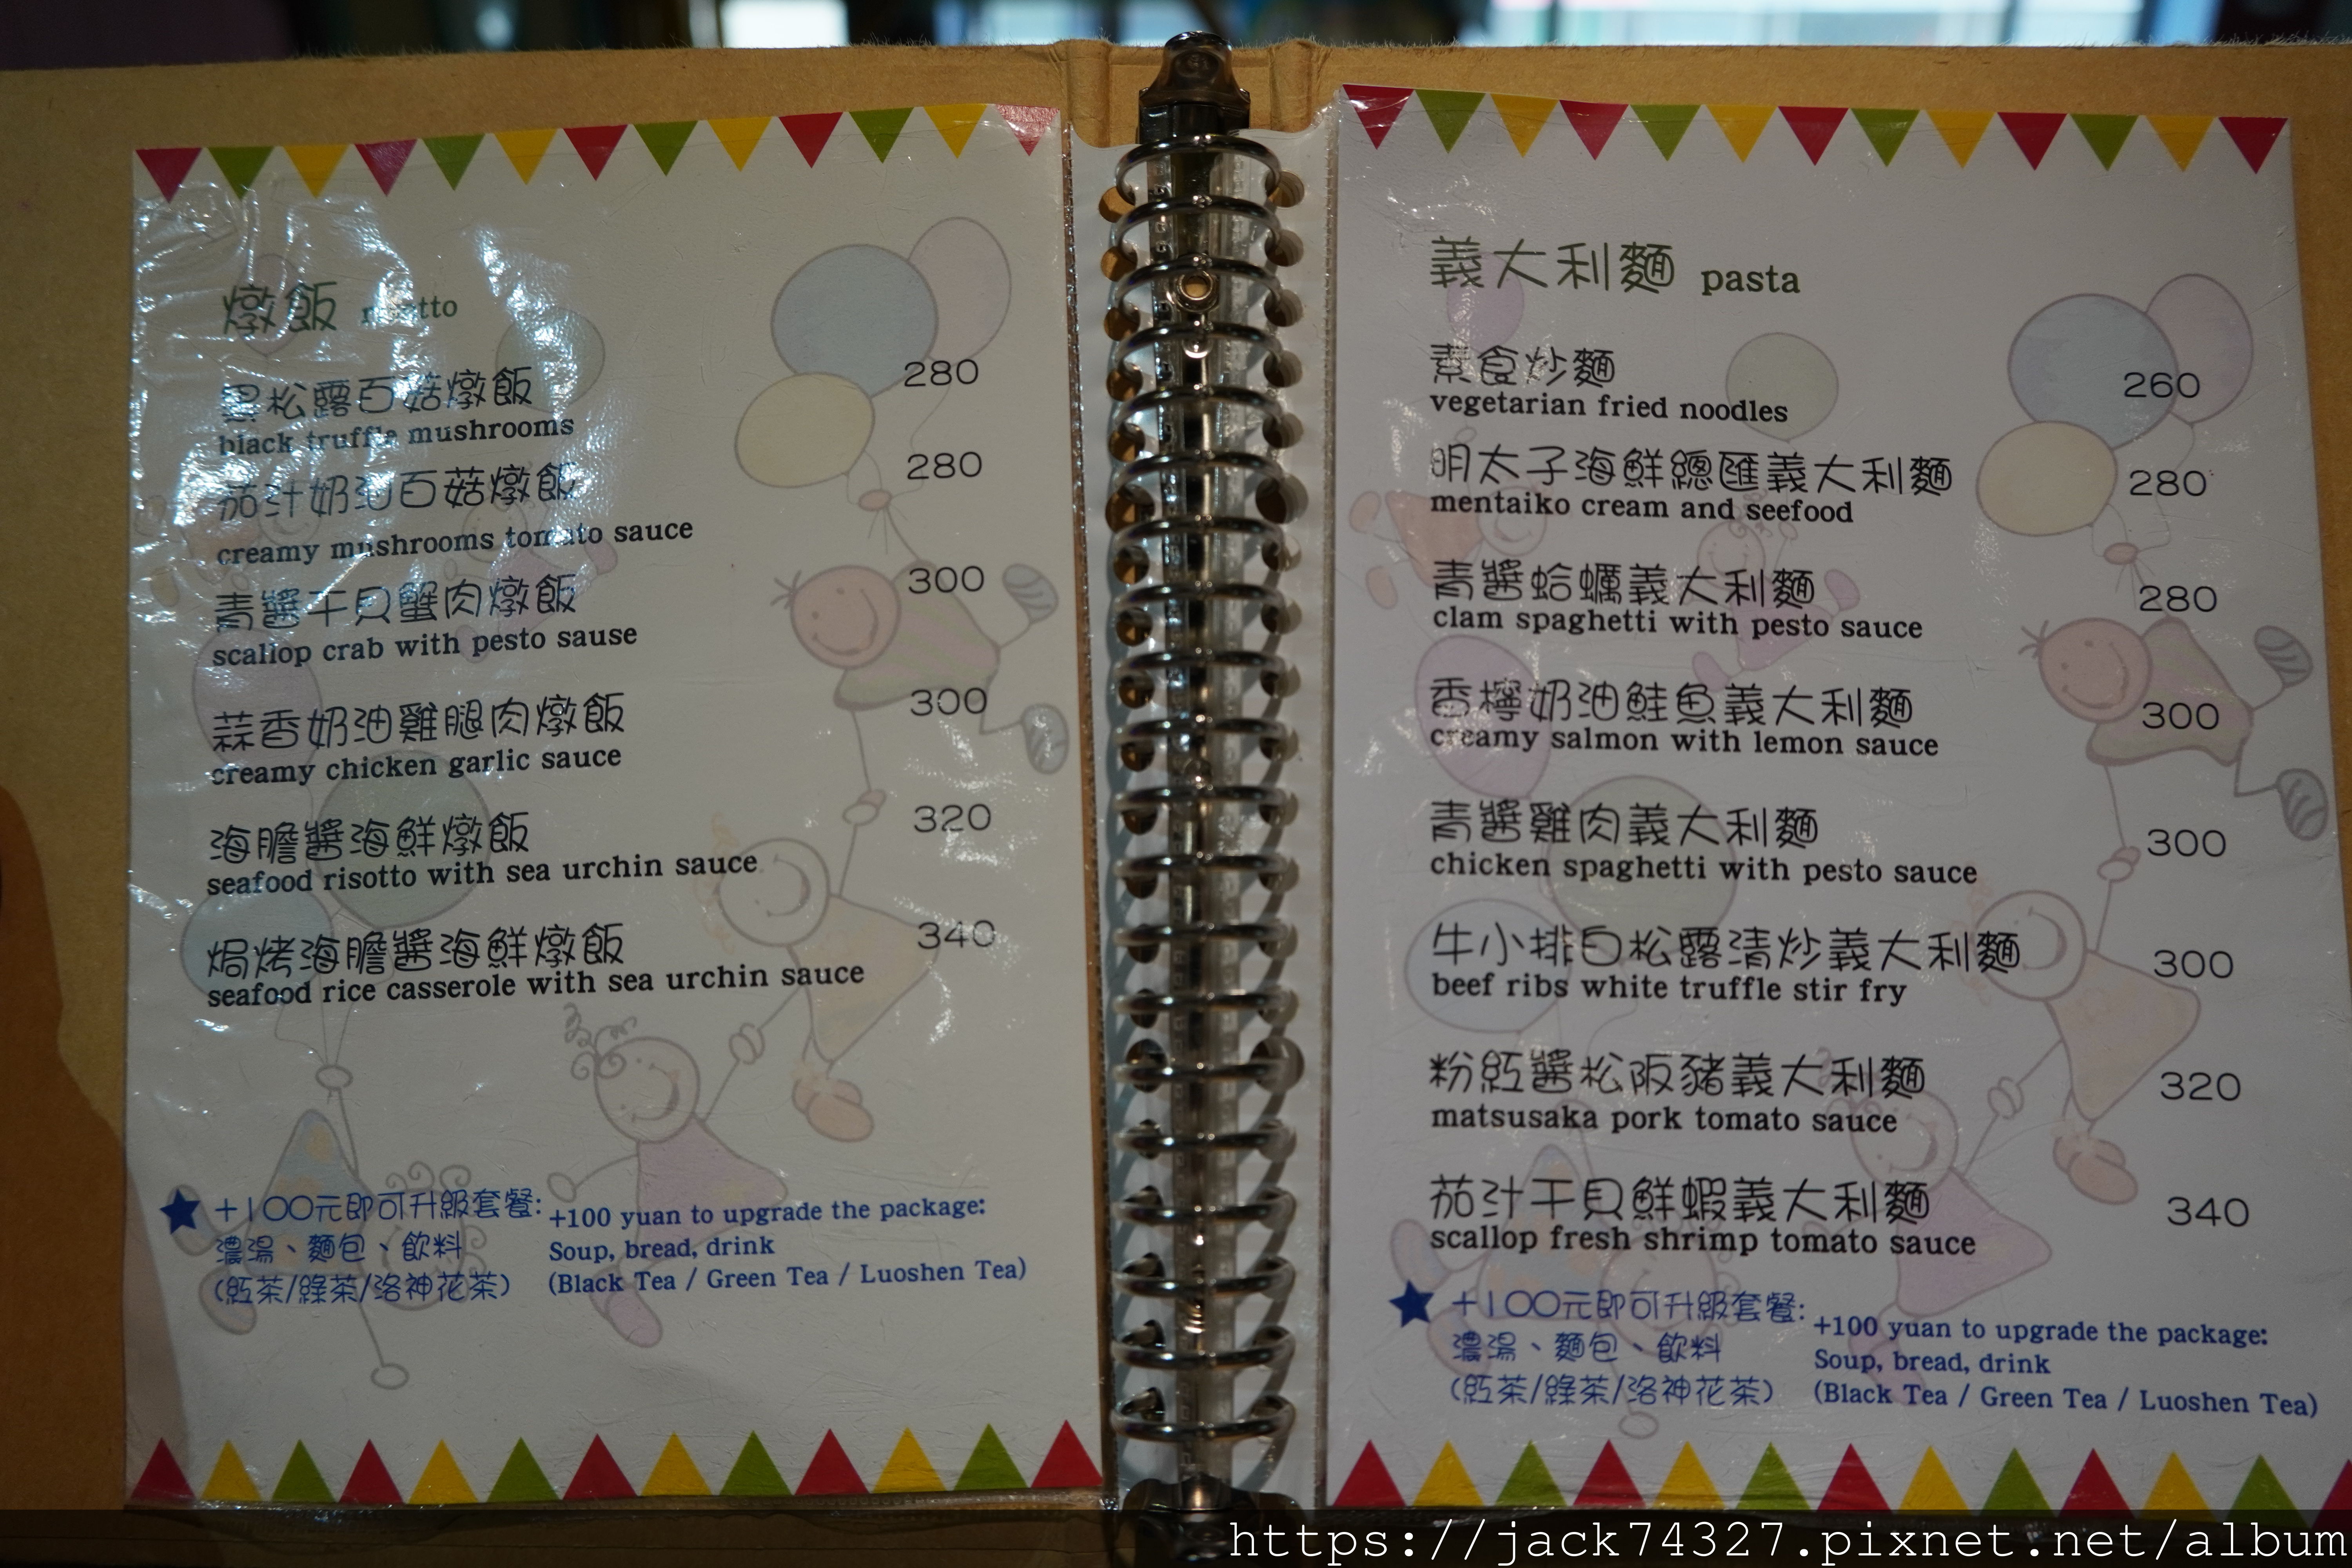 燉飯 risotto
黑松露百菇燉飯 280
black truffle mushrooms
茄汁奶油百菇燉飯 280
creamy mushrooms tomato sauce
青醬干貝蟹肉燉飯 300
scallop crab with pesto sause
蒜香奶油雞腿肉燉飯 300
creamy chicken garlic sauce
海膽醬海鮮燉飯 320
seafood risotto with sea urchin sauce
焗烤海膽醬海鮮燉飯 340
seafood rice casserole with sea urchin sauce
+100元即可升級套餐:
濃湯、麵包、飲料
(紅茶/綠茶/洛神花茶)
+100 yuan to upgrade the package:
Soup, bread, drink
(Black Tea / Green Tea / Luoshen Tea)
義大利麵 pasta
素食炒麵 260
vegetarian fried noodles
明太子海鮮總匯義大利麵 280
mentaiko cream and seefood
青醬蛤蠣義大利麵 280
clam spaghetti with pesto sauce
香檸奶油鮭魚義大利麵 300
creamy salmon with lemon sauce
青醬雞肉義大利麵 300
chicken spaghetti with pesto sauce
牛小排白松露清炒義大利麵 300
beef ribs white truffle stir fry
粉紅醬松阪豬義大利麵 320
matsusaka pork tomato sauce
茄汁干貝鮮蝦義大利麵 340
scallop fresh shrimp tomato sauce
+100元即可升級套餐:
濃湯、麵包、飲料
(紅茶/綠茶/洛神花茶)
+100 yuan to upgrade the package:
Soup, bread, drink
(Black Tea / Green Tea / Luoshen Tea)
https://jack74327.pixnet.net/album